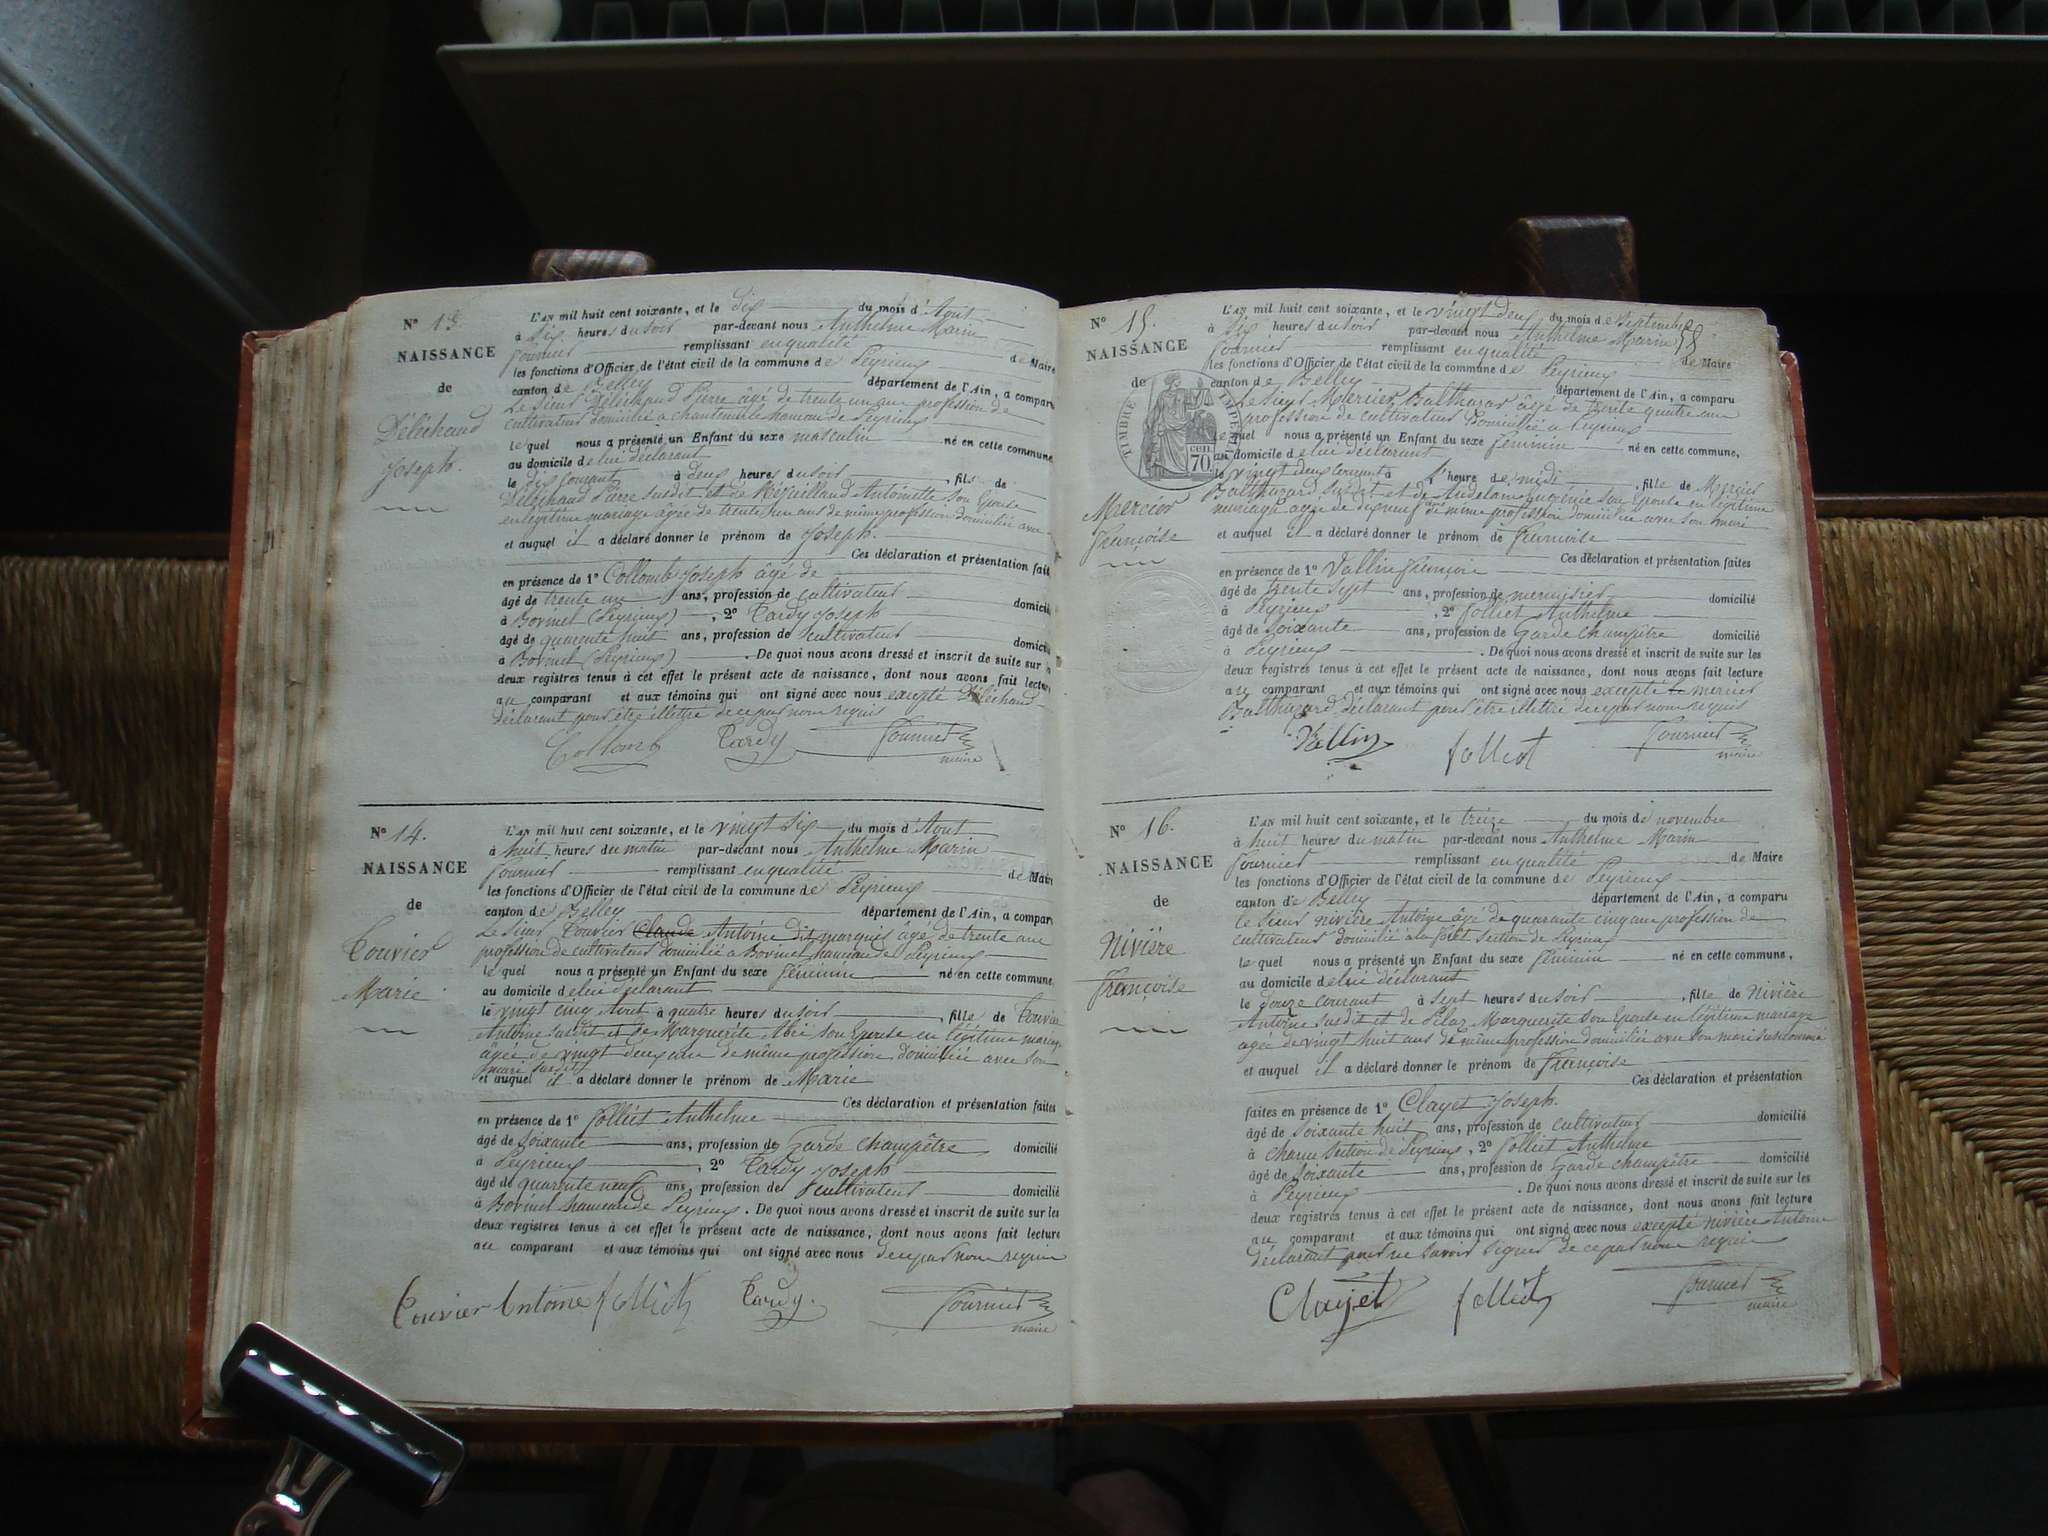 N° 13.
NAISSANCE
de
Délechaud
Joseph.
L'AN mil huit cent soixante, et le Six du mois d'Aout
à Six heures du soir par-devant nous Anthelme Marin
Fournier remplissant en qualité de Maire
les fonctions d'Officier de l'état civil de la commune de Peyrieux
canton de Belley département de l'Ain, a comparu
Le Sieur Délechaud Pierre âgé de trente un ans profession de
cultivateur domicilié a chantemerle hameau de Peyrieux
le quel nous a présenté un Enfant du sexe masculin né en cette commune,
au domicile de lui déclarant
le Six courant à Deux heures du soir, fils de
Délechaud Pierre susdit et de Antoinette Son Epouse
en légitime mariage âgée de trente ans de même profession domiciliée avec
et auquel il a déclaré donner le prénom de Joseph.
Ces déclaration et présentation faites
en présence de 1° Collomb Joseph âgé de
âgé de trente un ans, profession de cultivateur domicilié
à Bovinel (Peyrieux), 2° Tardy Joseph
âgé de quarante huit ans, profession de cultivateur domicilié
à Bovinel (Peyrieux). De quoi nous avons dressé et inscrit de suite sur
deux registres tenus à cet effet le présent acte de naissance, dont nous avons fait lecture
au comparant et aux témoins qui ont signé avec nous excepté Délechaud
déclarant pour être illettré de ce par nous requis
Collomb Tardy Fournier
maire
N° 14.
NAISSANCE
de
Touvier
Marie
L'AN mil huit cent soixante, et le vingt Six du mois d'Aout
à huit heures du matin par-devant nous Anthelme Marin
Fournier remplissant en qualité de Maire
les fonctions d'Officier de l'état civil de la commune de Peyrieux
canton de Belley département de l'Ain, a comparu
Le Sieur Touvier Claude Antoine dit marquis âgé de trente ans
profession de cultivateur domicilié a Bovinel hameau de Peyrieux
le quel nous a présenté un Enfant du sexe féminin né en cette commune,
au domicile de lui déclarant
le vingt cinq Aout à quatre heures du soir, fille de Touvier
Antoine susdit et de Marguerite son Epouse en légitime mariage
âgée de vingt deux ans de même profession domiciliée avec son
mari susdit
et auquel il a déclaré donner le prénom de Marie
Ces déclaration et présentation faites
en présence de 1° Folliet Anthelme
âgé de Soixante ans, profession de Garde champêtre domicilié
à Peyrieux, 2° Tardy Joseph
âgé de quarante neuf ans, profession de cultivateur domicilié
à Bovinel hameau de Peyrieux. De quoi nous avons dressé et inscrit de suite sur les
deux registres tenus à cet effet le présent acte de naissance, dont nous avons fait lecture
au comparant et aux témoins qui ont signé avec nous de ce par nous requis
Touvier Antoine folliet Tardy. Fournier
maire
58
N° 15.
NAISSANCE
de
TIMBRE IMPERIAL
70 cen.
Mercier
Françoise
L'AN mil huit cent soixante, et le vingt deux du mois de Septembre
à Six heures du soir par-devant nous Anthelme Marin
Fournier remplissant en qualité de Maire
les fonctions d'Officier de l'état civil de la commune de Peyrieux
canton de Belley département de l'Ain, a comparu
Le Sieur Mercier Balthazar âgé de trente quatre ans
profession de cultivateur Domicilié a Peyrieux
le quel nous a présenté un Enfant du sexe féminin né en cette commune,
au domicile de lui déclarant
le vingt deux courant à l'heure de midi, fille de Mercier
Balthazard susdit et de Eugénie Son Epouse en légitime
mariage âgée de dix neuf ans de même profession domiciliée avec son mari
et auquel il a déclaré donner le prénom de Françoise
Ces déclaration et présentation faites
en présence de 1° Vallin François
âgé de trente sept ans, profession de menuisier domicilié
à Peyrieux, 2° Folliet Anthelme
âgé de Soixante ans, profession de Garde champêtre domicilié
à Peyrieux. De quoi nous avons dressé et inscrit de suite sur les
deux registres tenus à cet effet le présent acte de naissance, dont nous avons fait lecture
au comparant et aux témoins qui ont signé avec nous excepté le mercier
Balthazard déclarant pour être illettré de ce par nous requis
Vallin folliet Fournier
maire
N° 16.
NAISSANCE
de
Nivière
Françoise
L'AN mil huit cent soixante, et le treize du mois de novembre
à huit heures du matin par-devant nous Anthelme Marin
Fournier remplissant en qualité de Maire
les fonctions d'Officier de l'état civil de la commune de Peyrieux
canton de Belley département de l'Ain, a comparu
le Sieur nivière Antoine âgé de quarante cinq ans profession de
cultivateur domicilié à la forêt section de Peyrieux
le quel nous a présenté un Enfant du sexe féminin né en cette commune,
au domicile de lui déclarant
le Douze courant à sept heures du soir, fille de Nivière
Antoine susdit et de Pelaz Marguerite son Epouse en légitime mariage
âgée de vingt huit ans de même profession domiciliée avec son mari susnommé
et auquel il a déclaré donner le prénom de Françoise
Ces déclaration et présentation
faites en présence de 1° Clayet Joseph.
âgé de soixante huit ans, profession de cultivateur domicilié
à charme section de Peyrieux, 2° Folliet Anthelme
âgé de Soixante ans, profession de Garde champêtre domicilié
à Peyrieux. De quoi nous avons dressé et inscrit de suite sur les
deux registres tenus à cet effet le présent acte de naissance, dont nous avons fait lecture
au comparant et aux témoins qui ont signé avec nous excepté nivière Antoine
déclarant pour ne savoir signer de ce par nous requis
Clayet folliet Fournier
maire